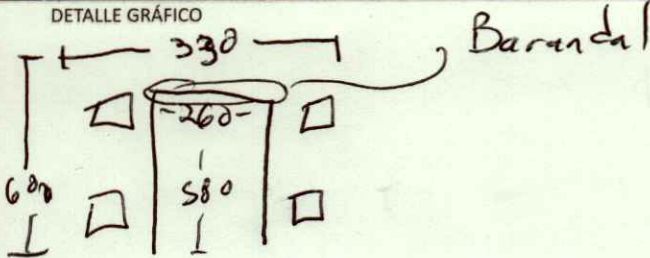 DETALLE GRÁFICO
330
Barandal
-260-
600
580